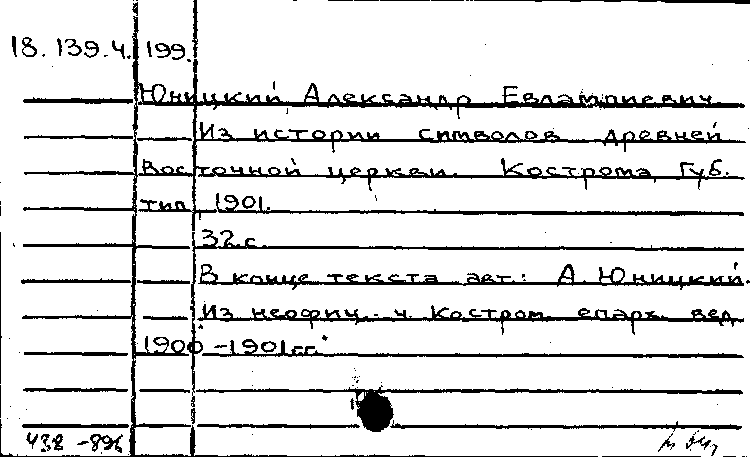 18.139.4.199.
Юницкий, Александр Евлампиевич
Из истории символов древней
Восточной церкви. Кострома, Губ.
тип., 1901.
32 с.
В конце текста авт.: А. Юницкий.
Из неофиц. ч. Костром. епарх. вед.
1900-1901 гг.
438-896